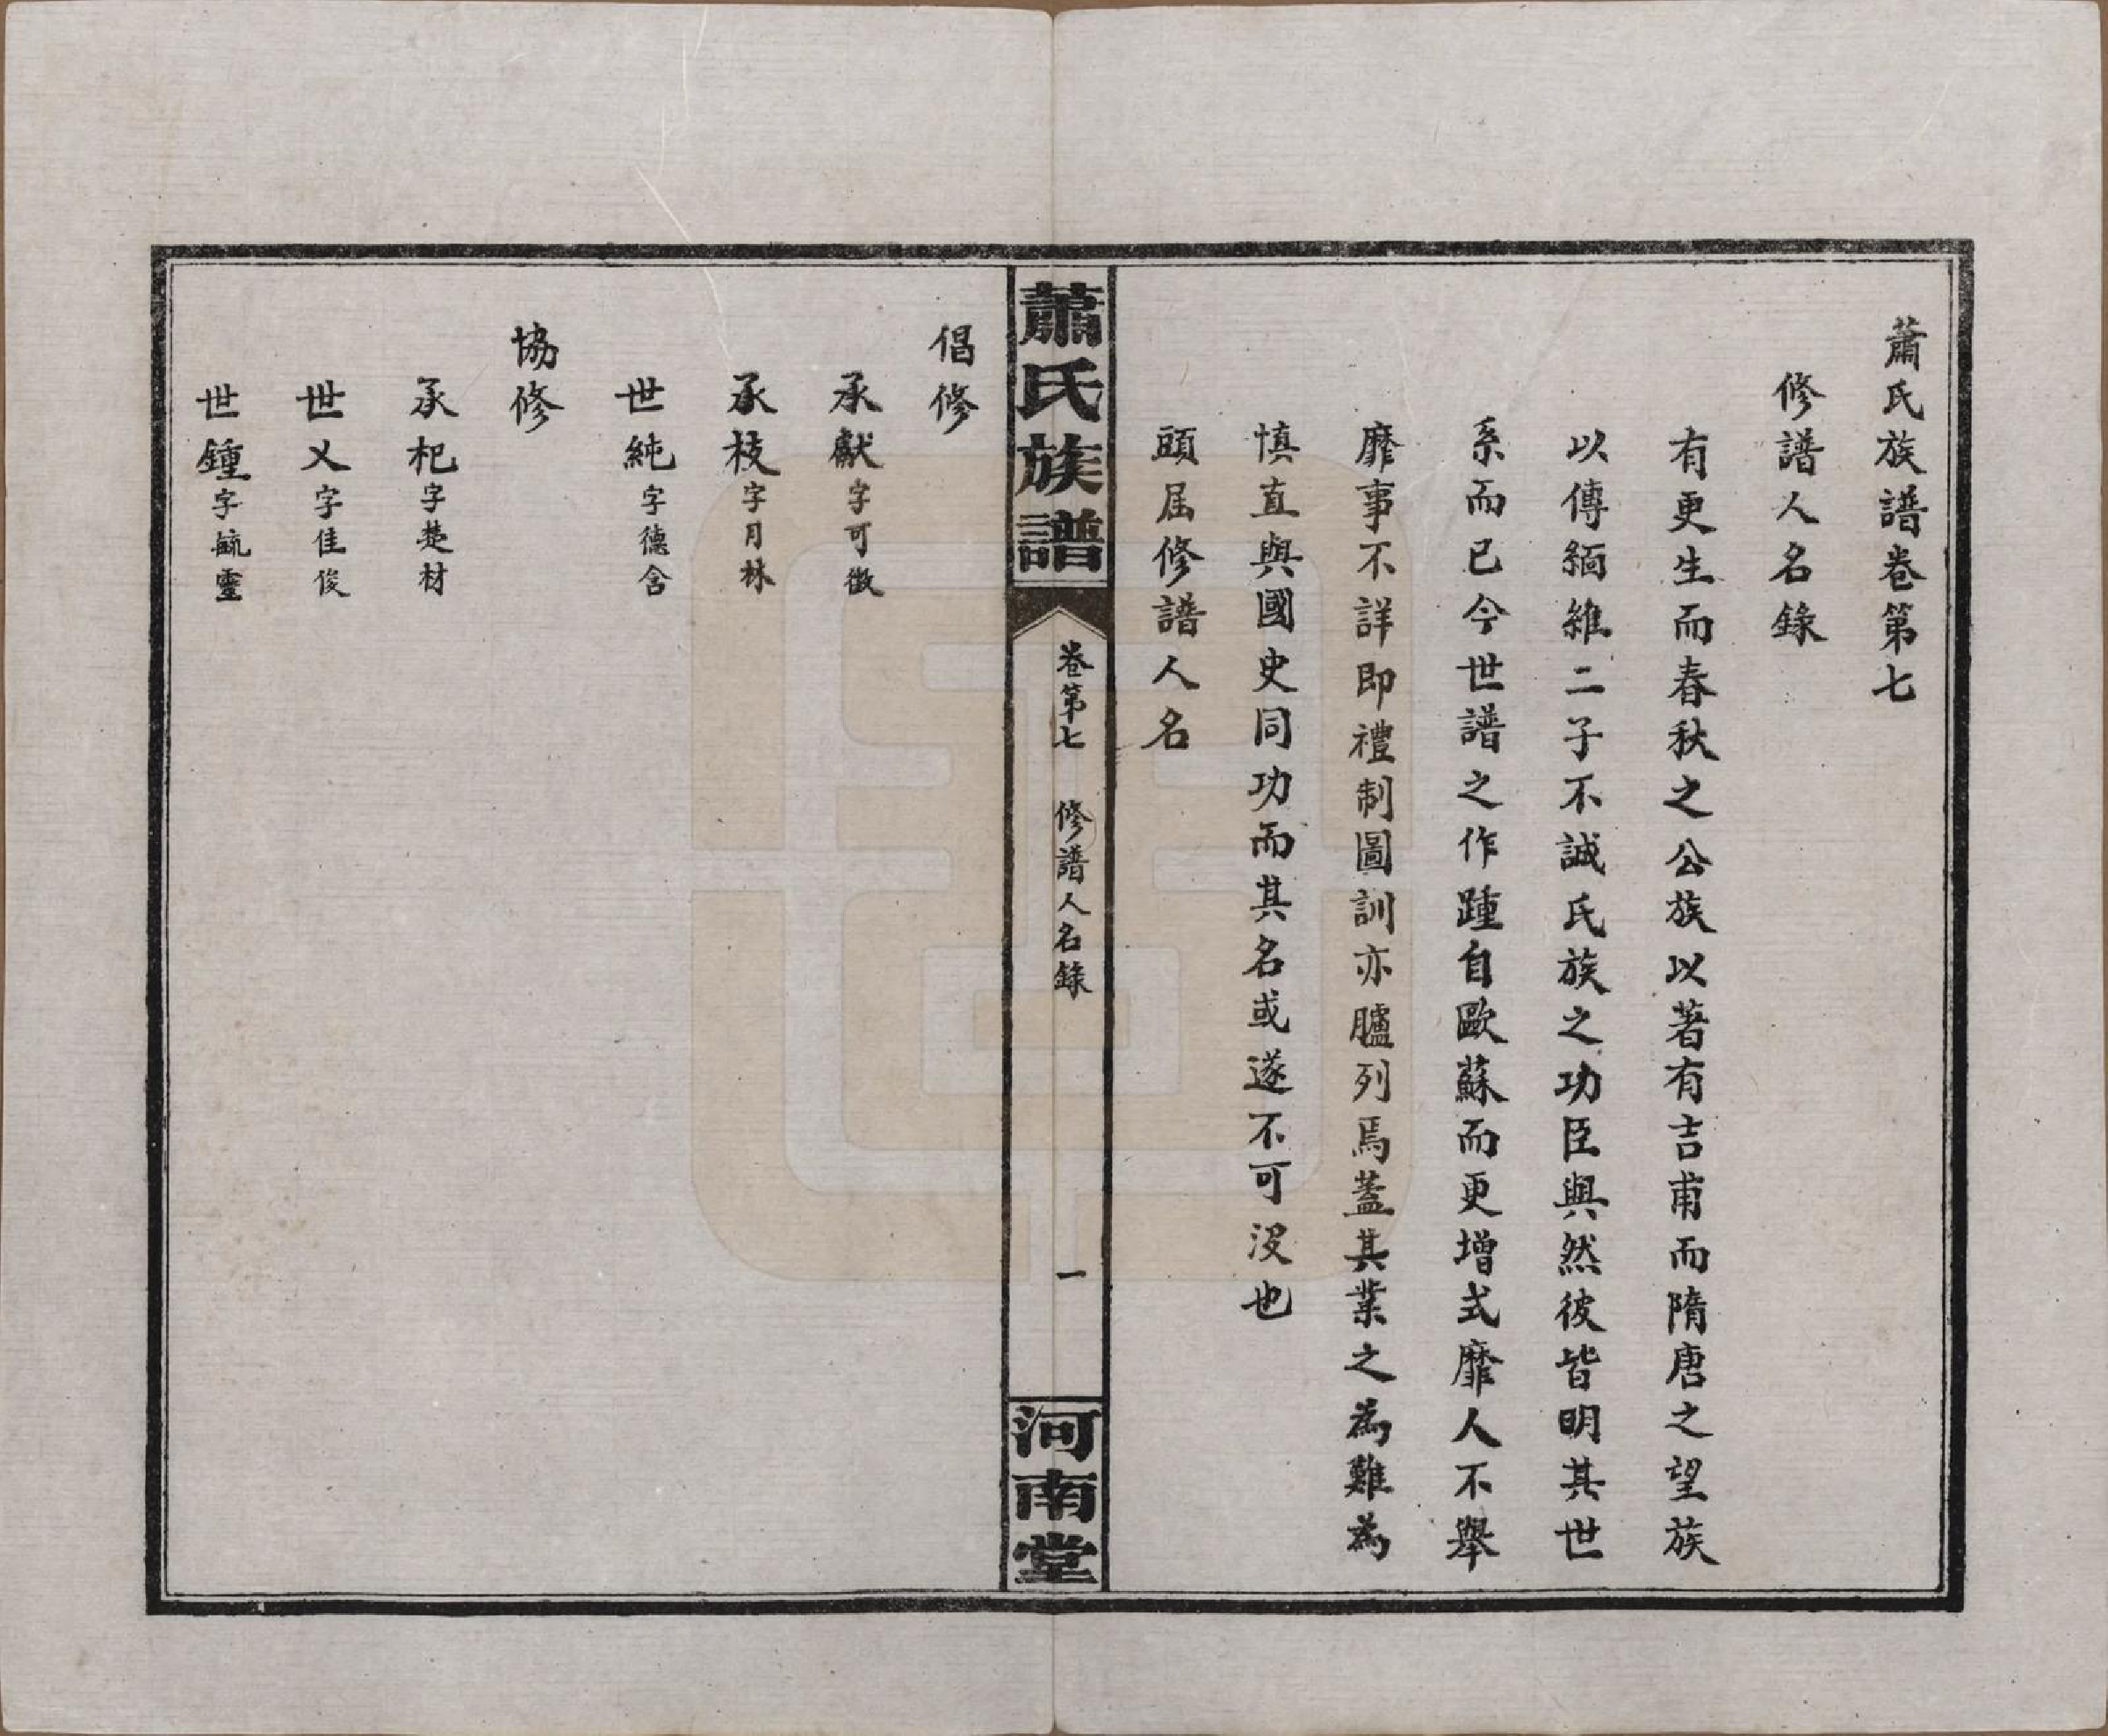 蕭氏族譜卷第七
修譜人名錄
有更生而春秋之公族以著有吉甫而隋唐之望族
以傳緬維二子不誠氏族之功臣與然彼皆明其世
系而已今世譜之作踵自歐蘇而更增式靡人不舉
靡事不詳即禮制圖訓亦臚列焉蓋其業之為難為
慎直與國史同功而其名或遂不可沒也
頭屆修譜人名
蕭氏族譜
卷第七 修譜人名錄
一
河南堂
倡修
承獻字可徵
承枝字月林
世純字德含
協修
承杞字楚材
世乂字佳俊
世鍾字毓靈